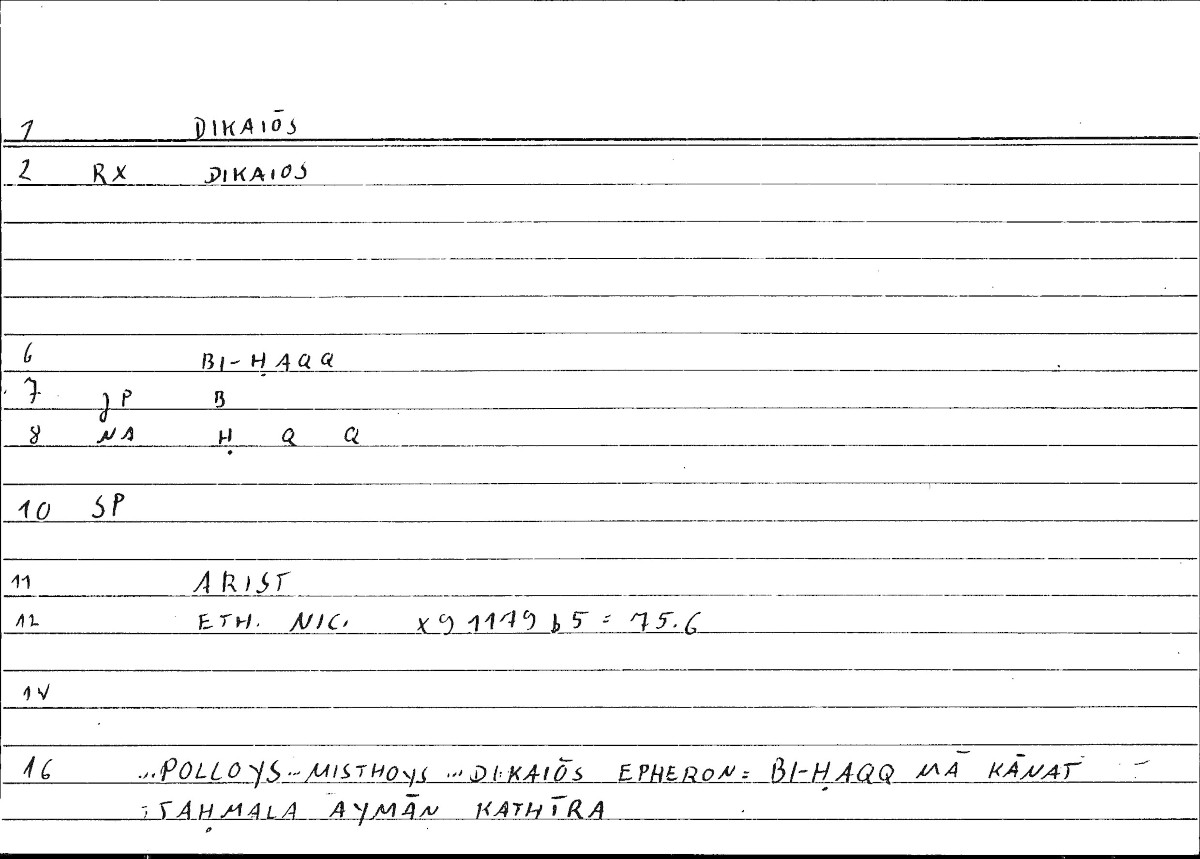 1 DIKAIŌS
2 RX DIKAIOS
6 BI-ḤAQQ
7 JP B
8 NS Ḥ Q Q
10 SP
11 ARIST
12 ETH. NIC. X9 1179 b5 = 75.6
14
16 ...POLLOYS...MISTHOYS ...DIKAIŌS EPHERON = BI-ḤAQQ MĀ KĀNAT
TAḤMALA AYMĀN KATHĪRA